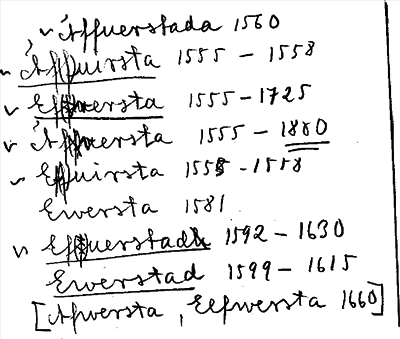 Äffuerstada 1560
Äffuirsta 1555 - 1558
Effwersta 1555-1725
Äffwersta 1555 - 1880
Effuirsta 1555 - 1558
Ewersta 1581
Effuerstad 1592 - 1630
Ewerstad 1599 - 1615
[Afwersta, Eefwersta 1660]